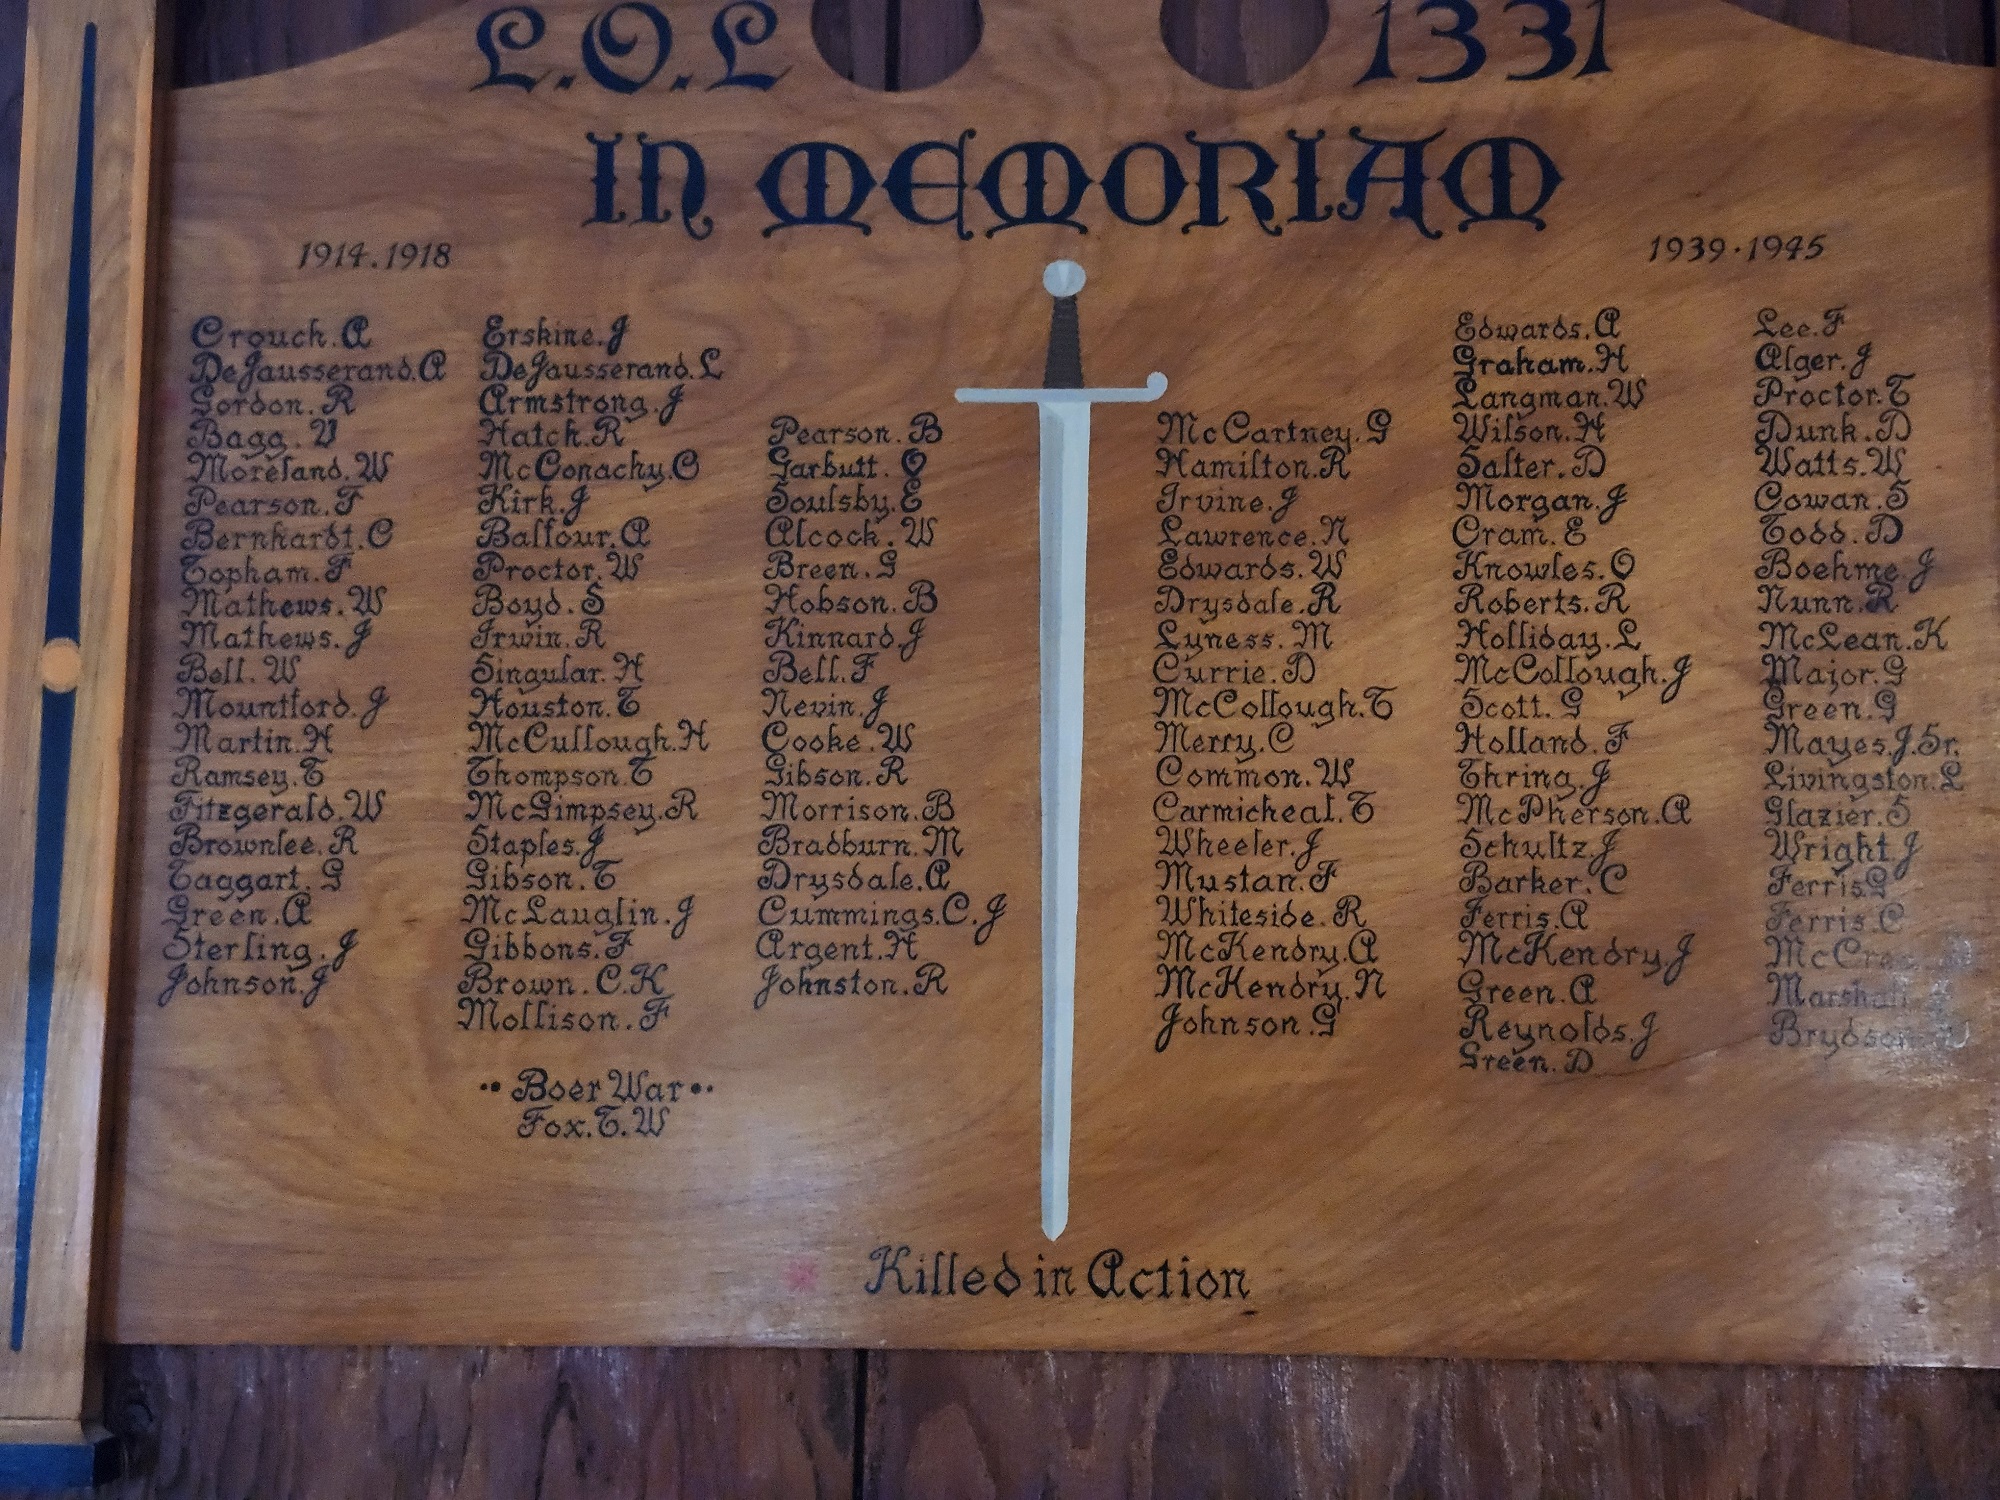 L.O.L 1331
IN MEMORIAM
1914.1918
Crouch.A
DeJausserand.A
Gordon.R
Bagg.V
Moreland.W
Pearson.F
Bernhardt.C
Topham.F
Mathews.W
Mathews.J
Bell.W
Mountford.J
Martin.H
Ramsey.T
Fitzgerald.W
Brownlee.R
Taggart.G
Green.A
Sterling.J
Johnson.J
Erskine.J
DeJausserand.L
Armstrong.J
Hatch.R
McConachy.C
Kirk.J
Balfour.A
Proctor.W
Boyd.S
Irwin.R
Singular.H
Houston.T
McCullough.H
Thompson.T
McGimpsey.R
Staples.J
Gibson.T
McLauglin.J
Gibbons.F
Brown.C.K
Mollison.F
Pearson.B
Garbutt.O
Soulsby.E
Alcock.W
Breen.G
Hobson.B
Kinnard.J
Bell.F
Nevin.J
Cooke.W
Gibson.R
Morrison.B
Bradburn.M
Drysdale.A
Cummings.C.J
Argent.H
Johnston.R
Boer War
Fox.T.W
1939.1945
McCartney.G
Hamilton.R
Irvine.J
Lawrence.N
Edwards.W
Drysdale.R
Lyness.M
Currie.D
McCollough.T
Merry.C
Common.W
Carmicheal.T
Wheeler.J
Mustan.F
Whiteside.R
McKendry.A
McKendry.N
Johnson.G
Edwards.A
Graham.H
Langman.W
Wilson.H
Salter.D
Morgan.J
Cram.E
Knowles.O
Roberts.R
Holliday.L
McCollough.J
Scott.G
Holland.F
Thring.J
McPherson.A
Schultz.J
Barker.C
Ferris.A
McKendry.J
Green.A
Reynolds.J
Green.D
Lee.F
Alger.J
Proctor.T
Dunk.D
Watts.W
Cowan.S
Todd.D
Boehme.J
Nunn.R
McLean.K
Major.G
Green.G
Mayes.J.Sr.
Livingston.L
Glazier.S
Wright.J
Ferris.G
Ferris.C
Marshall
Brydson
Killed in Action